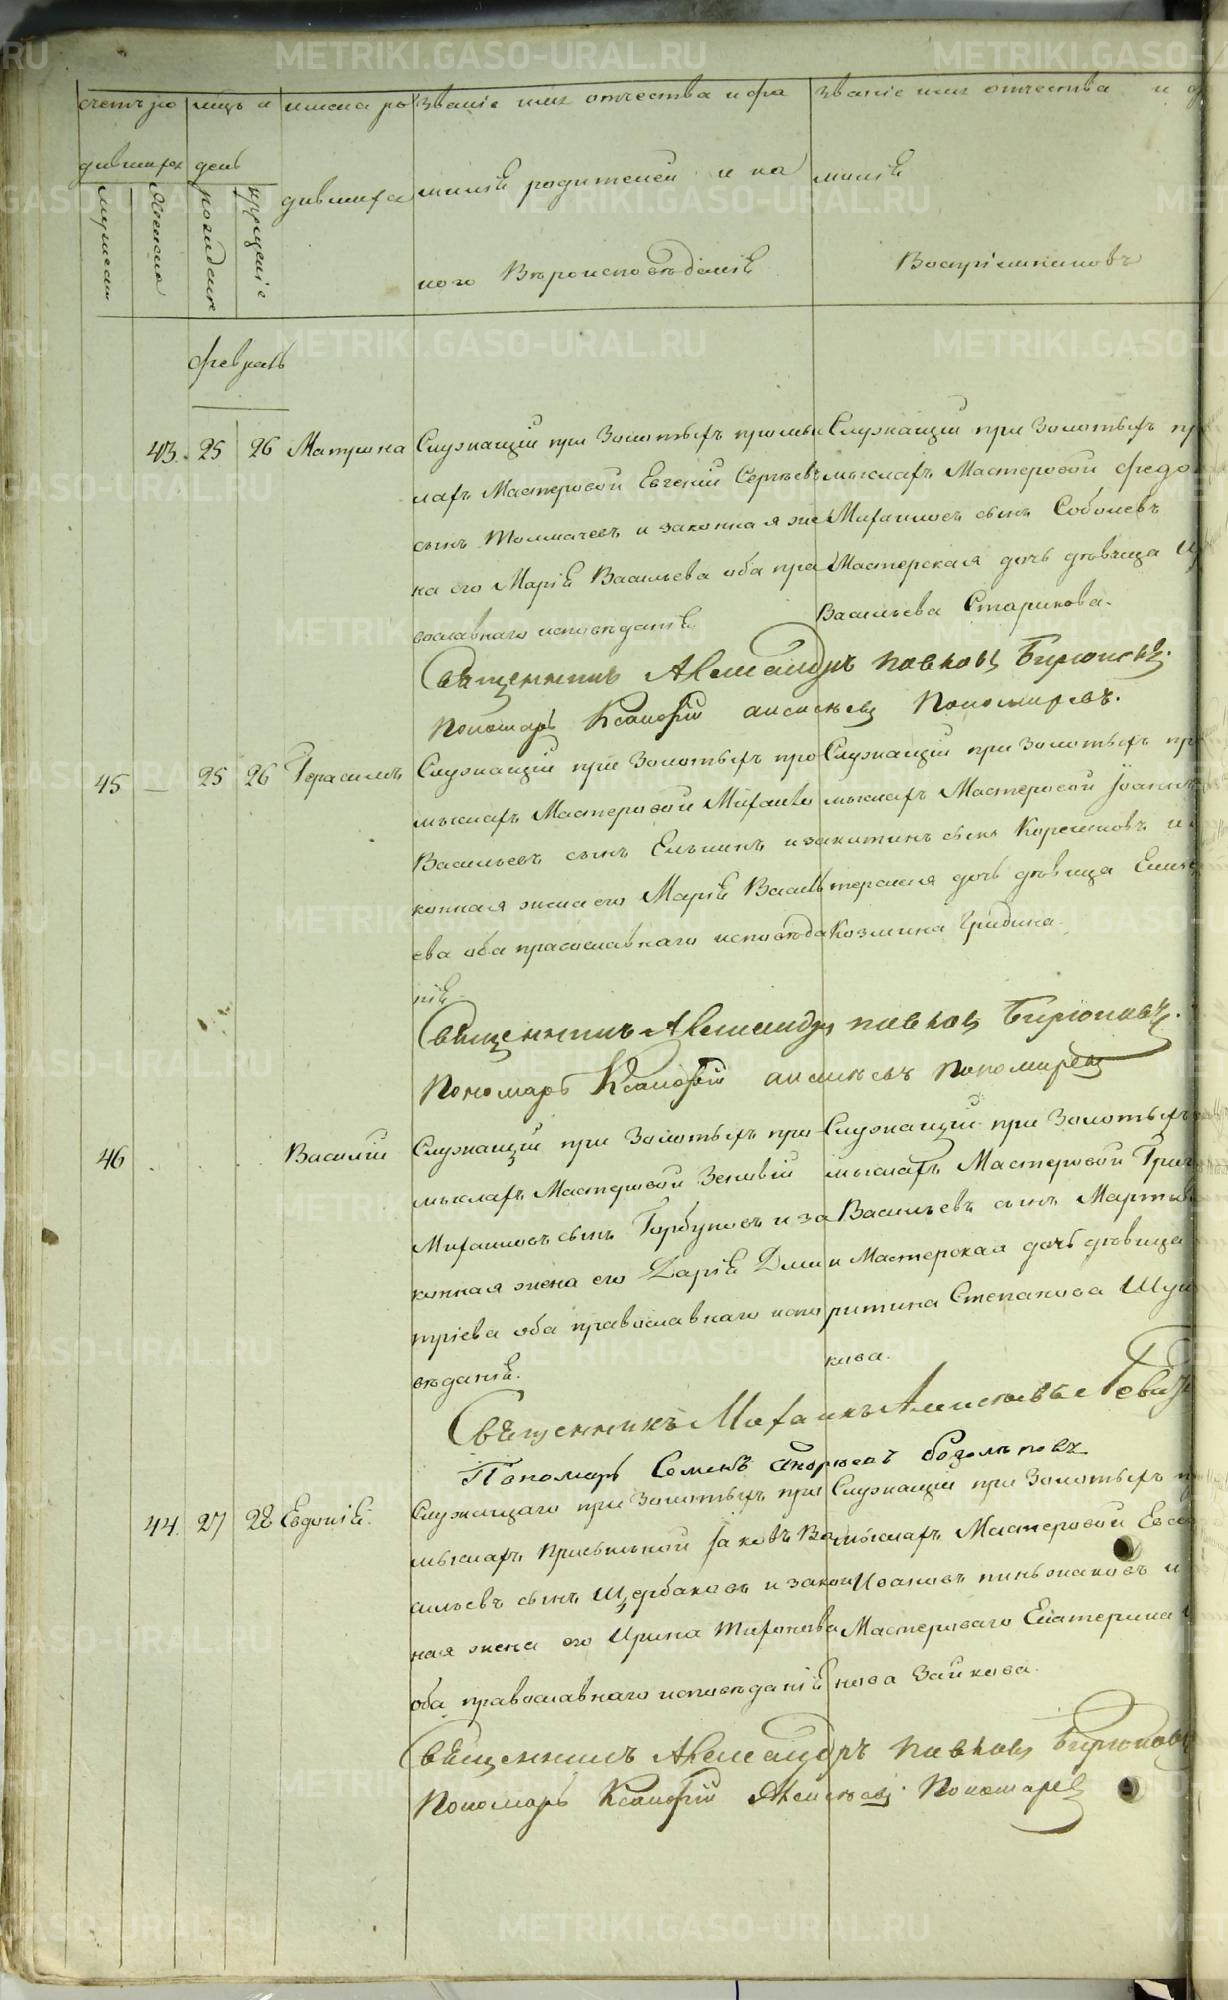 счетъ ро
дившихся
мужеска
женска
мцъ и
день
рождение
крщеніе
имена ро
дившихся
званіе имя отчества и фа
миліи родителей и ка
кого Вѣроисповѣданія
званіе имя отчества и ф
миліи
Воспріемниковъ
февраль
43. 25 26 Матрона
Служащій при Золотыхъ промы
слахъ Мастеровой Евгеній Сергѣевъ
сынъ Толмачевъ и законная же
на его Марія Васильева оба пра
вославнаго исповѣданія
Служащій при Золотыхъ пр
мыслахъ Мастеровой Федо
Михаиловъ сынъ Соболевъ
Мастерская дочь дѣвица
Васильева Старикова.
Священникъ Александръ Павловъ Бирюковъ.
Пономарь Ксанофій Алексѣевъ Пономаревъ.
45 — 25 26 Герасимъ
Служащій при Золотыхъ про
мыслахъ Мастеровой Михаило
Васильевъ сынъ Елькинъ и за
конная жена его Марія Василь
ева оба православнаго исповѣда
нія
Служащій при Золотыхъ пр
мыслахъ Мастеровой Іоаннъ
Никитинъ сынъ Корешковъ и
терская дочь дѣвица
Козмина Гридина.
Священникъ Александръ Павловъ Бирюковъ.
Пономарь Ксанофій Алексѣевъ Пономаревъ
46 Василій
Служащій при Золотыхъ про
мыслахъ Мастеровой Зеновій
Михаиловъ сынъ Горбуновъ и за
конная жена его Дарія Дими
тріева оба православнаго испо
вѣданія.
Служащій при Золотыхъ
мыслахъ Мастеровой Григ
Васильевъ сынъ
и Мастерская дочь дѣвица
Степанова
кова.
Священникъ Михаилъ Алексѣевъ
Пономарь Семенъ Андреевъ
44. 27 28 Евдокія.
Служащаго при Золотыхъ про
мыслахъ Присыльной Іаковъ Ва
сильевъ сынъ Щербаковъ и закон
ная жена его Ирина Тихонова
оба православнаго исповѣданія
Служащій при Золотыхъ п
мыслахъ Мастеровой Евс
Ивановъ Пиньжаковъ и
Мастероваго Екатерина
нова Зайкова.
Священникъ Александръ Павловъ Бирюковъ
Пономарь Ксанофій Алексѣевъ Пономаревъ
METRIKI.GASO-URAL.RU